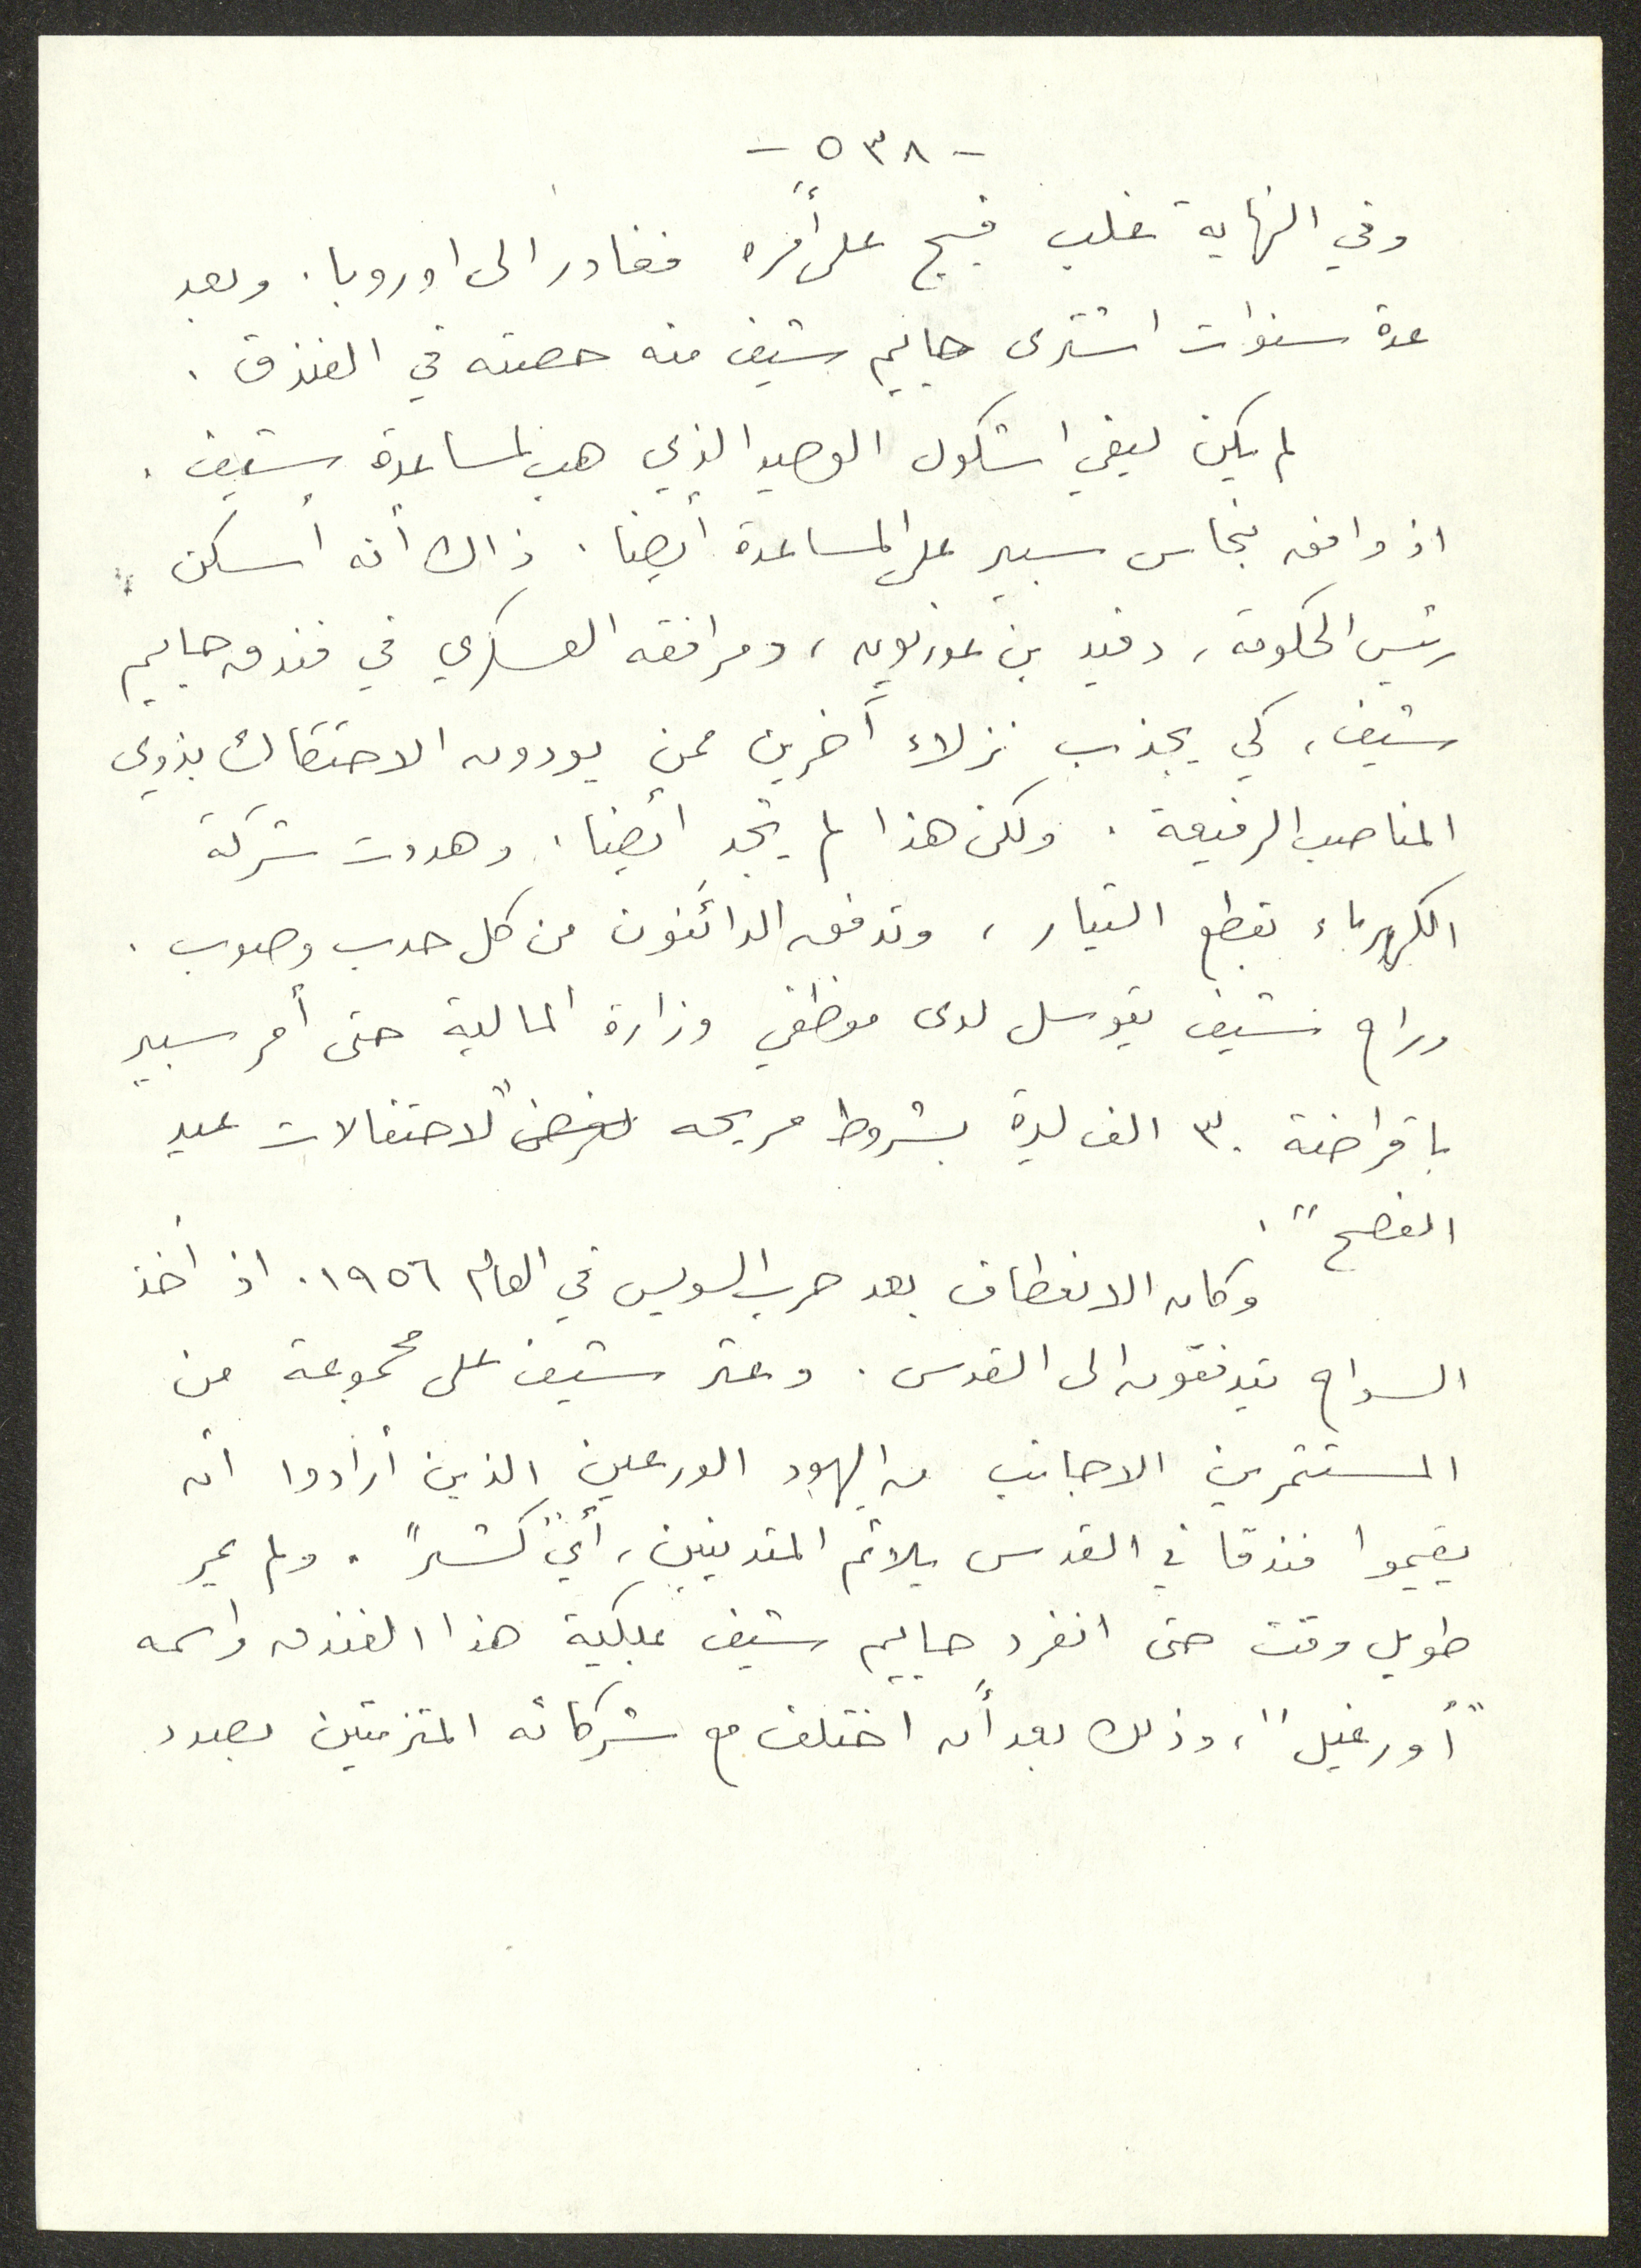 - ٥٣٨ -
وفي النهاية غلب فيبج على أمره فغادر الى اوروبا. وبعد
عدة سنوات اشترى حاييم شيف منه حصته في الفندق.
لم يكن ليفي اشكول الوحيد الذي هب لمساعدة شيف.
اذ وافق بنحاس سبير على المساعدة أيضا. ذاك أنه أسكن
رئيس الحكومة، دفيد بن غوريون، ومرافقه العسكري في فندق حاييم
شيف، كي يجذب نزلاء آخرين ممن يودون الاحتكاك بذوي
المناصب الرفيعة. ولكن هذا لم يجد أيضا. وهددت شركة
الكهرباء بقطع التيار، وتدفق الدائنون من كل حدب وصوب.
وراح شيف يتوسل لدى موظفي وزارة المالية حتى أمر سبير
باقراضه ٣٠ الف ليرة بشروط مريحه لغرض "لاحتفالات عيد
الفصح".
وكان الانعطاف بعد حرب السويس في العام ١٩٥٦. اذ أخذ
السواح يتدفقون الى القدس. وعثر شيف على مجموعة من
المستثمرين الاجانب من اليهود الورعين الذين أرادوا أن
يقيموا فندقا في القدس يلائم المتدينين، أي "كشير". ولم يمر
طويل وقت حتى انفرد حاييم شيف بملكية هذا الفندق واسمه
"أورغيل"، وذلك بعد أن اختلف مع شركائه المتزمتين بصدد